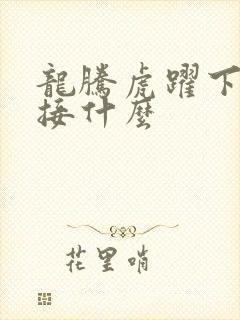 龍騰虎躍下
接什麼
花里哨